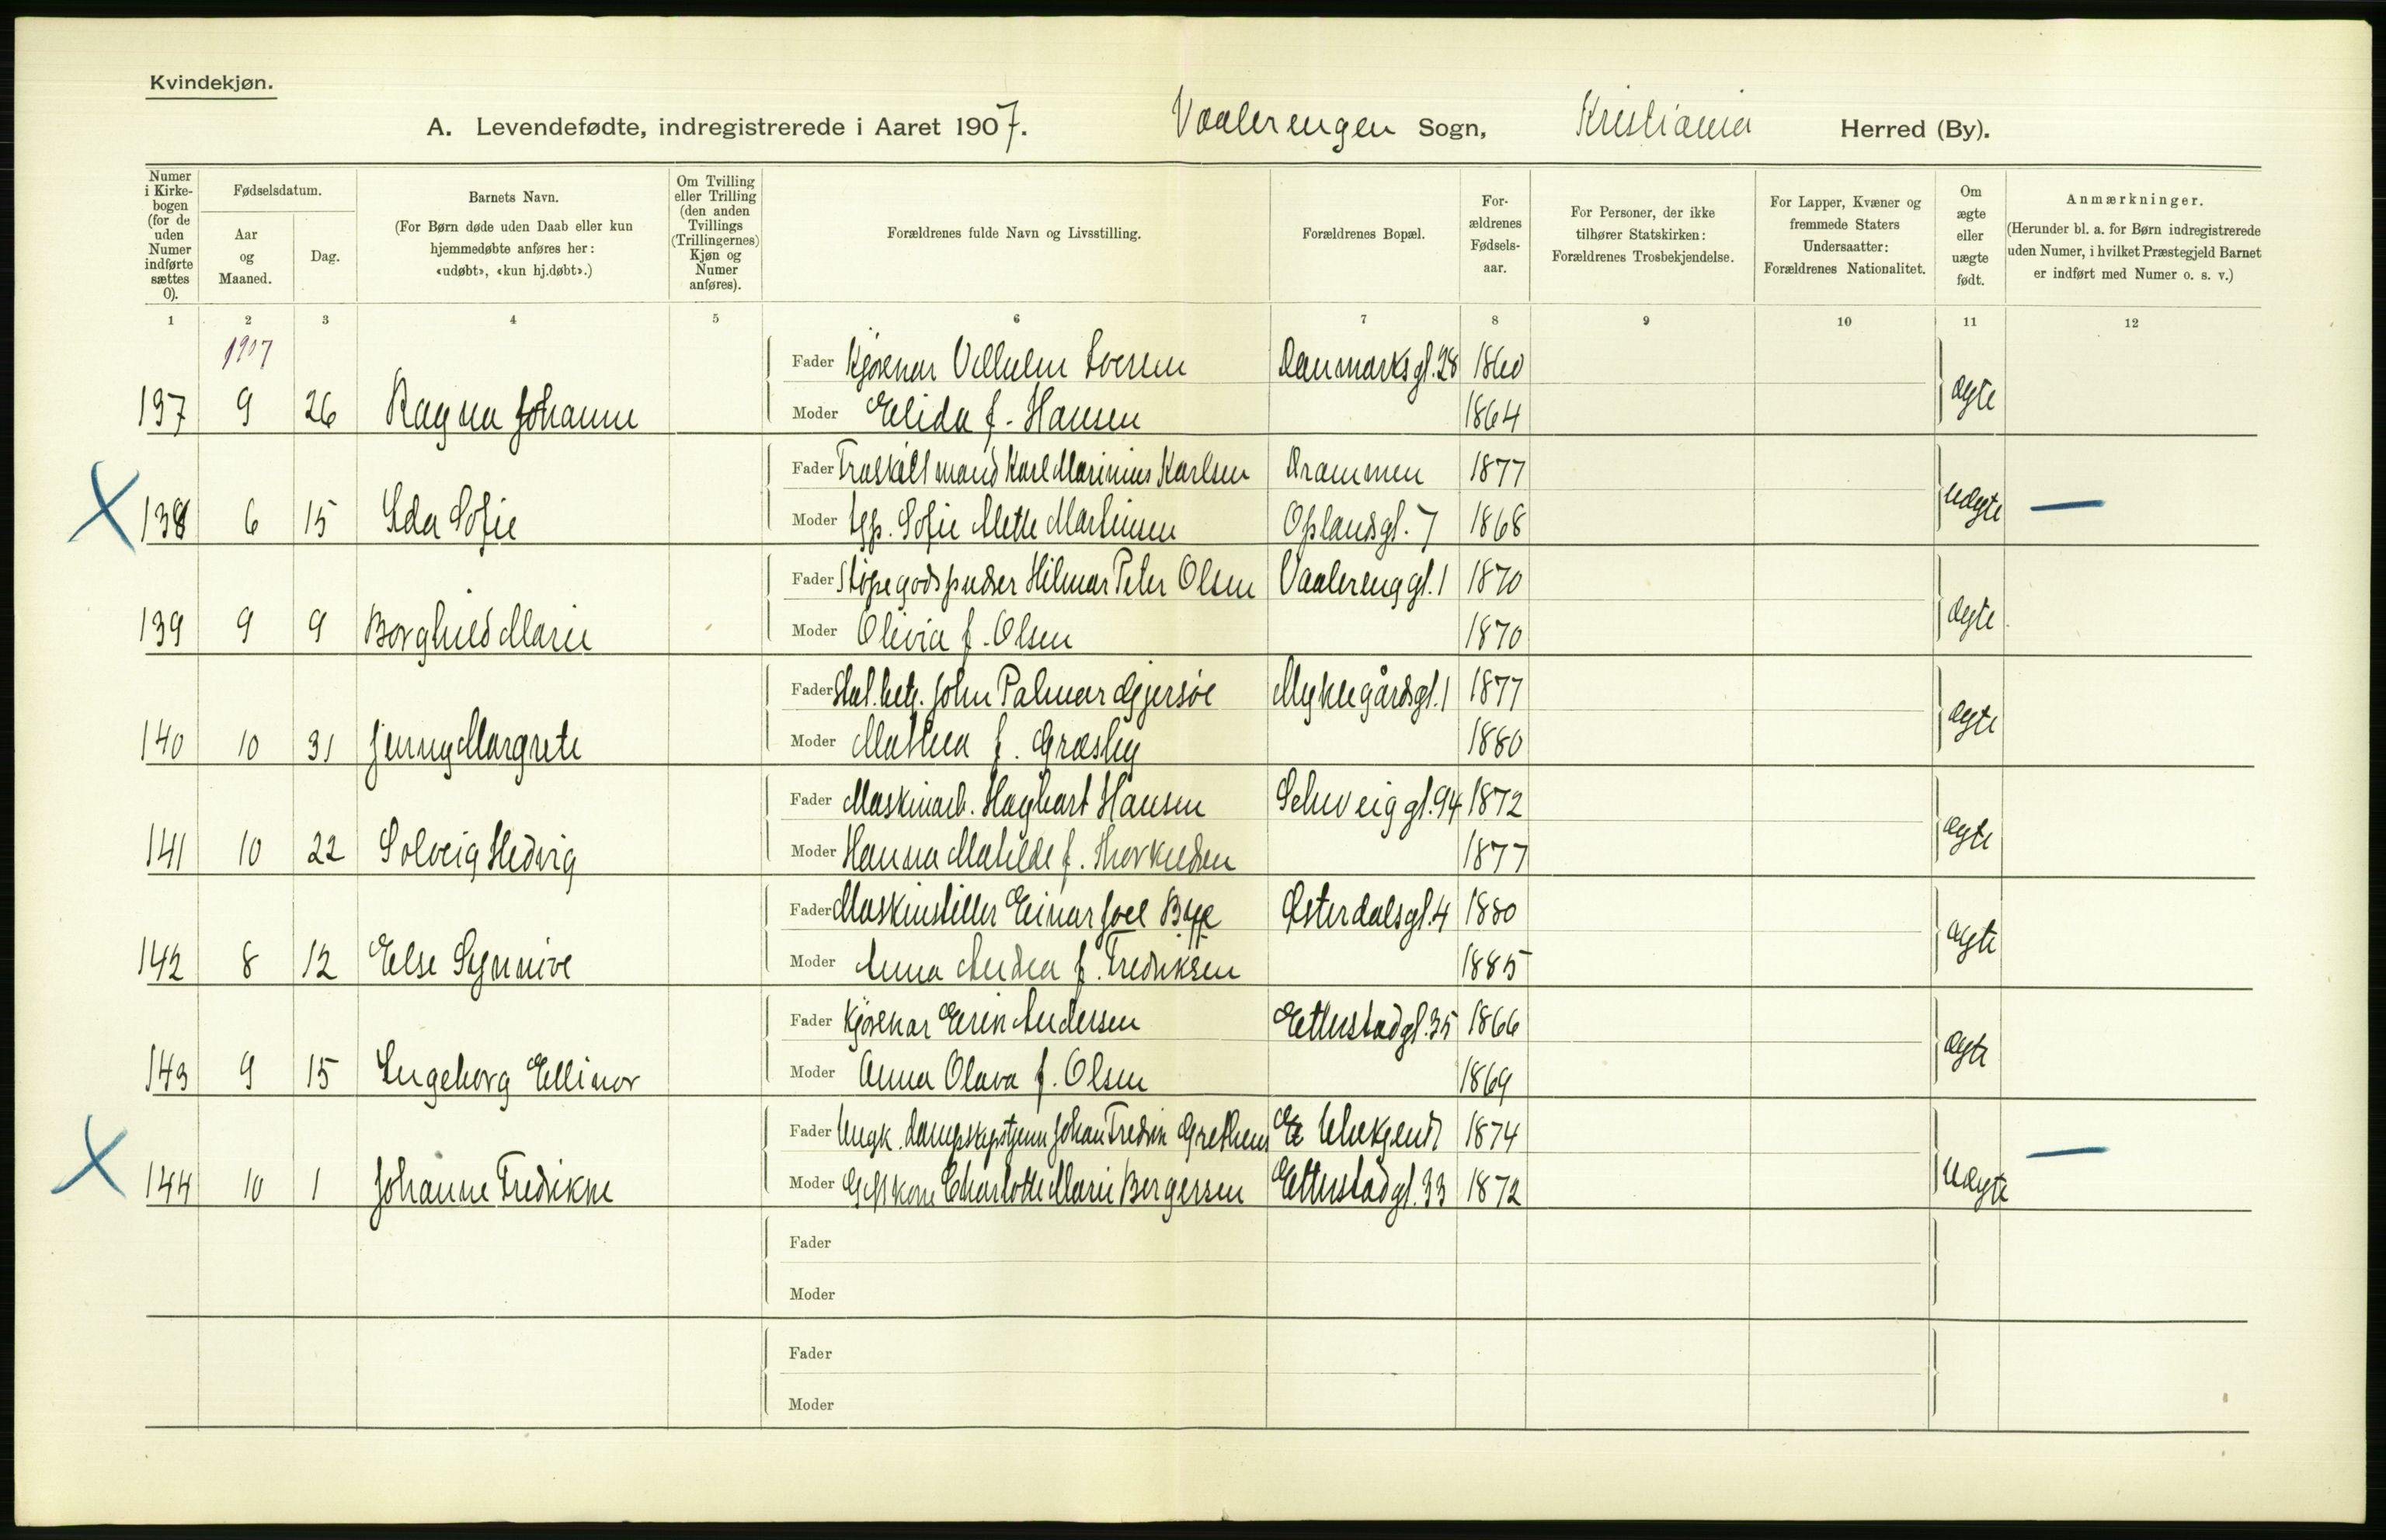 Kvindekjøn.
A. Levendefødte, indregistrerede i Aaret 1907. Vaalerengen Sogn, Kristiania Herred (By).
Numer i Kirke-bogen (for de uden Numer indførte sættes 0).
Fødselsdatum.
Aar og Maaned.
Dag.
Barnets Navn.
(For Børn døde uden Daab eller kun hjemmedøbte anføres her: «udøbt», «kun hj.døbt».)
Om Tvilling eller Trilling (den anden Tvillings (Trillingernes) Kjøn og Numer anføres).
Forældrenes fulde Navn og Livsstilling.
Forældrenes Bopæl.
For-ældrenes Fødsels-aar.
For Personer, der ikke tilhører Statskirken: Forældrenes Trosbekjendelse.
For Lapper, Kvæner og fremmede Staters Undersaatter: Forældrenes Nationalitet.
Om ægte eller uægte født.
Anmærkninger.
(Herunder bl. a. for Børn indregistrerede uden Numer, i hvilket Præstegjeld Barnet er indført med Numer o. s. v.)
1 2 3 4 5 6 7 8 9 10 11 12
1907
Fader Kjørekar Vilhelm Iversen Danmarksgt. 28 1860
137 9 26 Ragna Johanne Moder Elida f. Hansen 1864 ægte
Fader Fraskilt mand Karl Marinius Karlsen Drammen 1877
138 6 15 Ida Sofie Moder Sofie Mette Martinsen Oplandsgt. 7 1868 uægte —
Fader Støpegodspudser Hilmar Peter Olsen Vaalerenggt. 1 1870
139 9 9 Borghild Marie Moder Olivia f. Olsen 1870 ægte
Fader John Palmar Gjersøe Munkegårdsgt. 1 1877
140 10 31 Jenny Margrete Moder Mathea f. Græsby 1880 ægte
Fader Maskinarb. Hagbart Hansen Schweiggt. 94 1872
141 10 22 Solveig Hedvig Moder Hanna Matilde f. Thorkildsen 1877 ægte
Fader Maskinstiller Einar Joel Østerdalsgt. 4 1880
142 8 12 Else Synnøve Moder Anna Andrea f. Fredriksen 1885 ægte
Fader Kjørekar Erik Andersen Etterstadgt. 35 1866
143 9 15 Ingeborg Ellinor Moder Anna Olava f. Olsen 1869 ægte
Fader Ungk. Johan Fredrik Er Ubekjendt 1874
144 10 1 Johanne Fredikke Moder Gift kone Charlotte Marie Borgersen Etterstadgt. 33 1872 uægte —
Fader
Moder
Fader
Moder